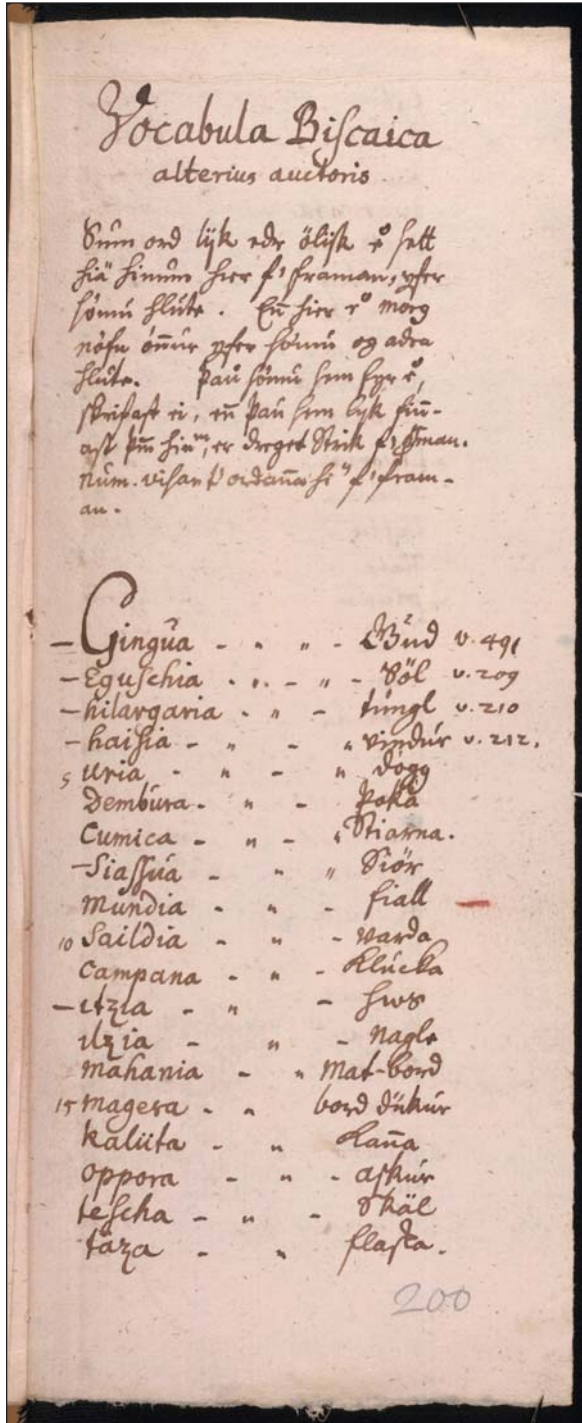 Vocabula Biscaica
alterius auctoris
Sum ord lijk edr ölijk eº sett
hiä hinum hier fʼ framan, yfer
sömu hlute. En̄ hier eº mörg
nöfn ön̄ur yfer sömu og adra
hlute. Þau sömu sem fyr eº,
skrifast ei, en̄ þau sem lijk fin̄-
ast er dreget Strik
num. visar
an.
– Gingua - „ „ - Gud v. 491
– Eguschia - „ - „ - Söl v. 209
– hilargaria - „ - tungl v. 210
– haisia - „ - „ vindur v. 212.
5 Uria - „ - „ dögg
Dembura - „ - þoka
Cumica - „ - „ Stiarna.
– Siassua - „ „ Siör
Mundia - „ - fiall –
10 Saildia - „ - varda
Campana - „ - Klucka
– itzia - „ - hws
ilzia - „ - nagle
Mahania - „ mat-bord
15 Magera - „ bord dükur
Kaluta - „ Kan̄a
oppora - „ - askur
tescha - „ - Skäl
täza - „ flaska.
200